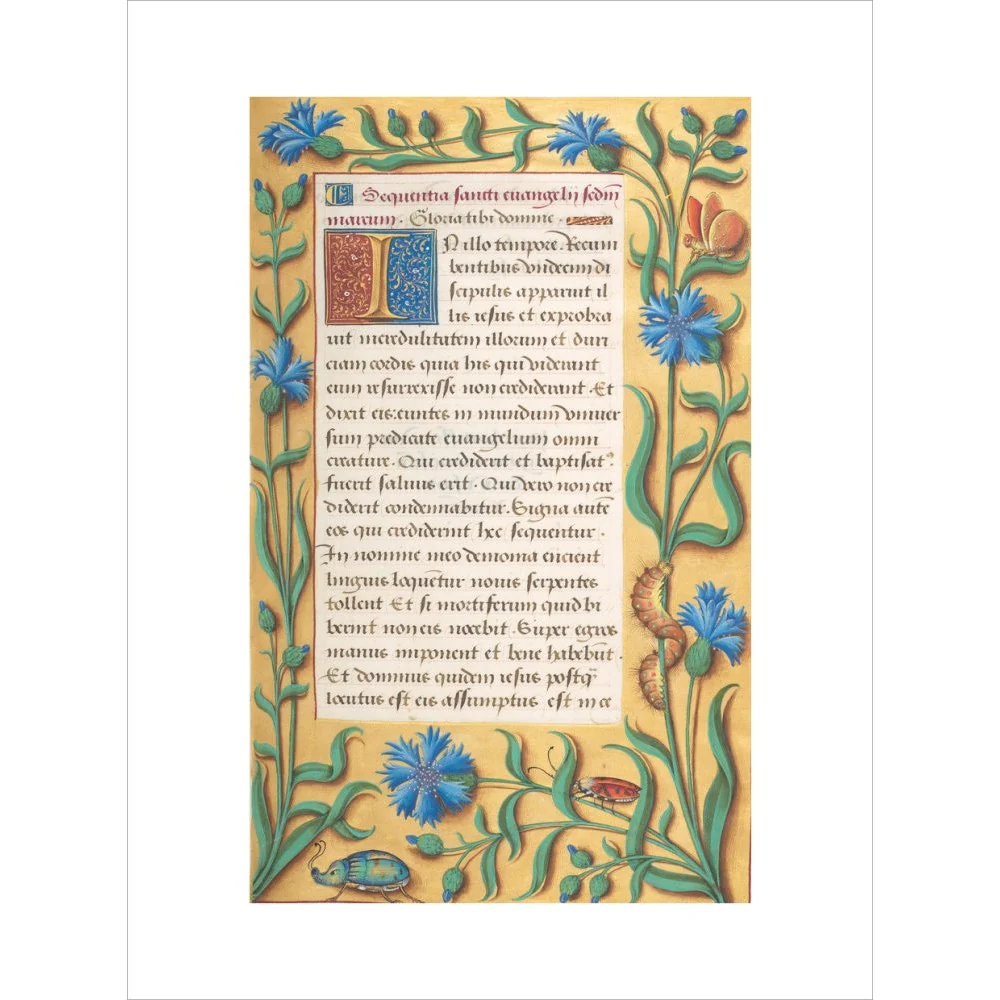 Sequentia sancti euangelij secdm̄
marcum. Gloria tibi domine.
IN illo tempore. Recum
bentibus vndecim di
scipulis apparuit il
lis iesus et exprobra
uit incredulitatem illorum et duri
ciam cordis quia his qui viderant
eum resurrexisse non crediderant. Et
dixit eis: euntes in mundum vniuer
sum predicate euangelium omni
creature. Qui crediderit et baptisat᷒
fuerit saluus erit. Qui vero non cre
diderit condemnabitur. Signa autē
eos qui crediderint hec sequentur.
In nomine meo demonia eiicient
linguis loquentur nouis serpentes
tollent Et si mortiferum quid bi
berint non eis nocebit. Super egros
manus imponent et bene habebūt.
Et dominus quidem iesus postq̄
locutus est eis assumptus est in ce